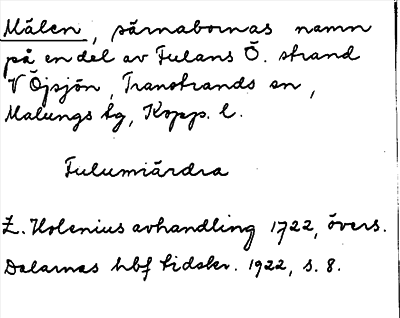 Målen, särnabornas namn
på en del av Fulans Ö. strand
V Öjsjön, Transtrands sn,
Malungs tg, Kopp. l.
Fulumiärdra
L. Holenius avhandling 1722, övers.
Dalarnas hbf tidskr. 1922, s. 8.